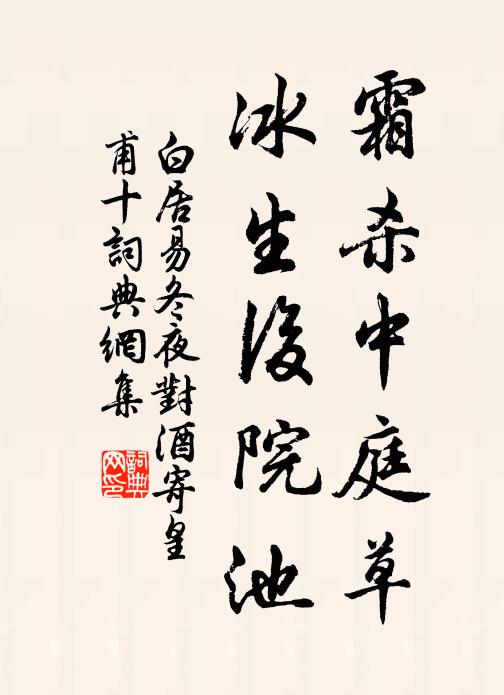 霜杀中庭草
冰生後院池
白居易冬夜對酒寄皇
甫十詞典網集
詞典
网印